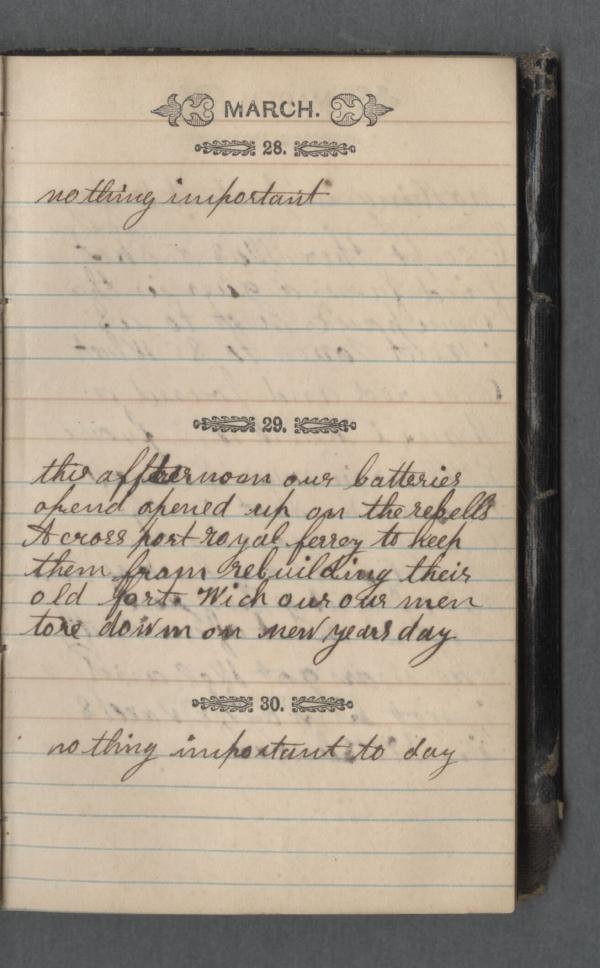 MARCH.
28.
nothing important
29.
this afternoon our batteries
opend opened up on the rebells
Across port royal ferrey to keep
them from rebuilding their
old fort. Wich our our men
tore down on new years day
30.
nothing important to day